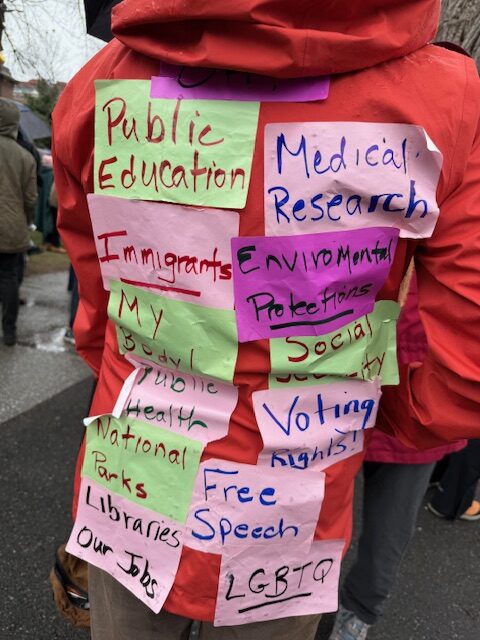 Public
Education
Medical
Research
Immigrants
Enviromental
Protections
My
Body!
Social
Security
Public
Health
Voting
Rights!
National
Parks
Free
Speech
Libraries
Our Jobs
LGBTQ